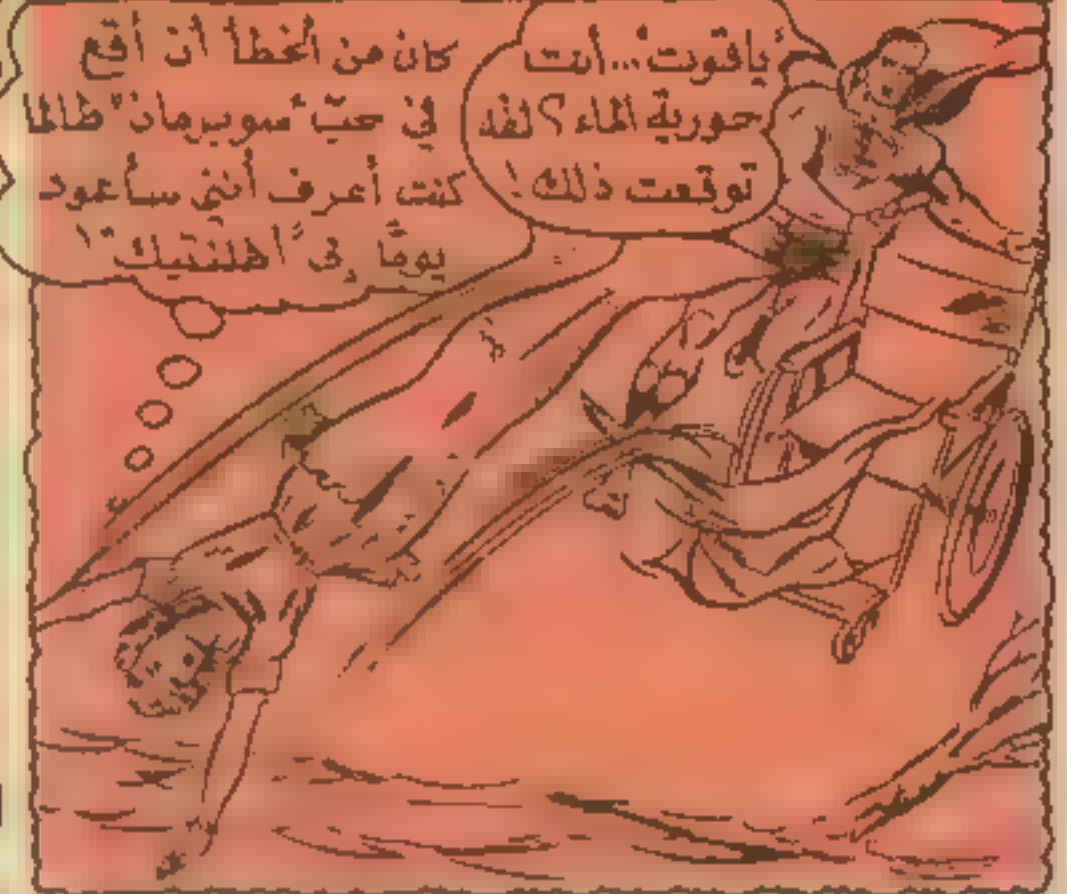 "ياقوت"...أنت
حورية الماء؟ لقد
توقعت ذلك!
كان من الخطأ أن أقع
في حبّ "سوبرمان" طالما
كنت أعرف أنني سأعود
يومًا إلى "اطلنتيك"!